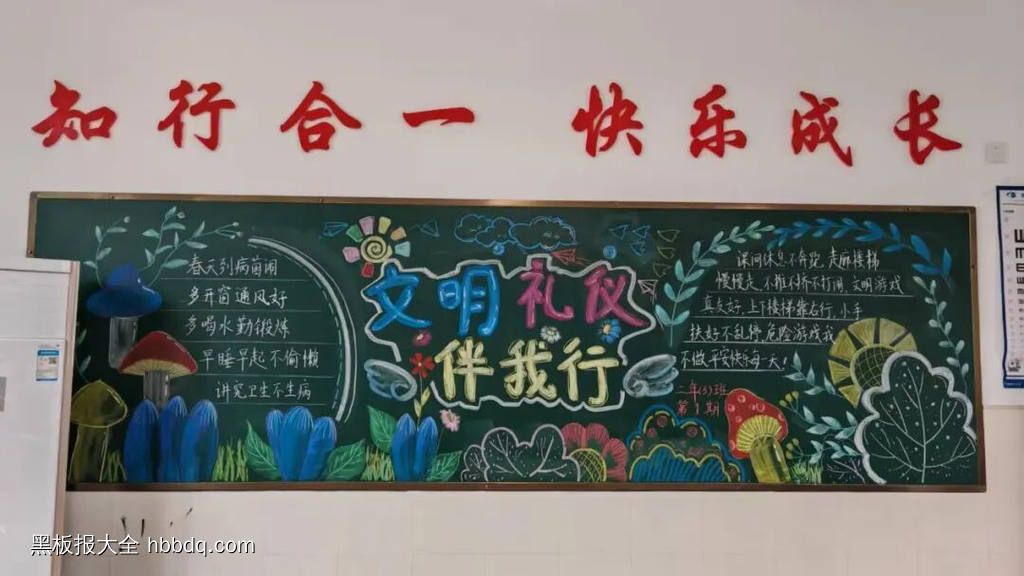 知行合一 快乐成长
春天到病菌闹
多开窗通风好
多喝水勤锻炼
早睡早起不偷懒
讲究卫生不生病
文明礼仪
伴我行
课间休息不奔跑 走廊楼梯
慢慢走 不推不挤不打闹 文明游戏
真友好 上下楼梯靠右行 小手
扶好不乱停 危险游戏我
不做平安快乐每一天！
二年(3)班
第1期
黑板报大全 hbbdq.com